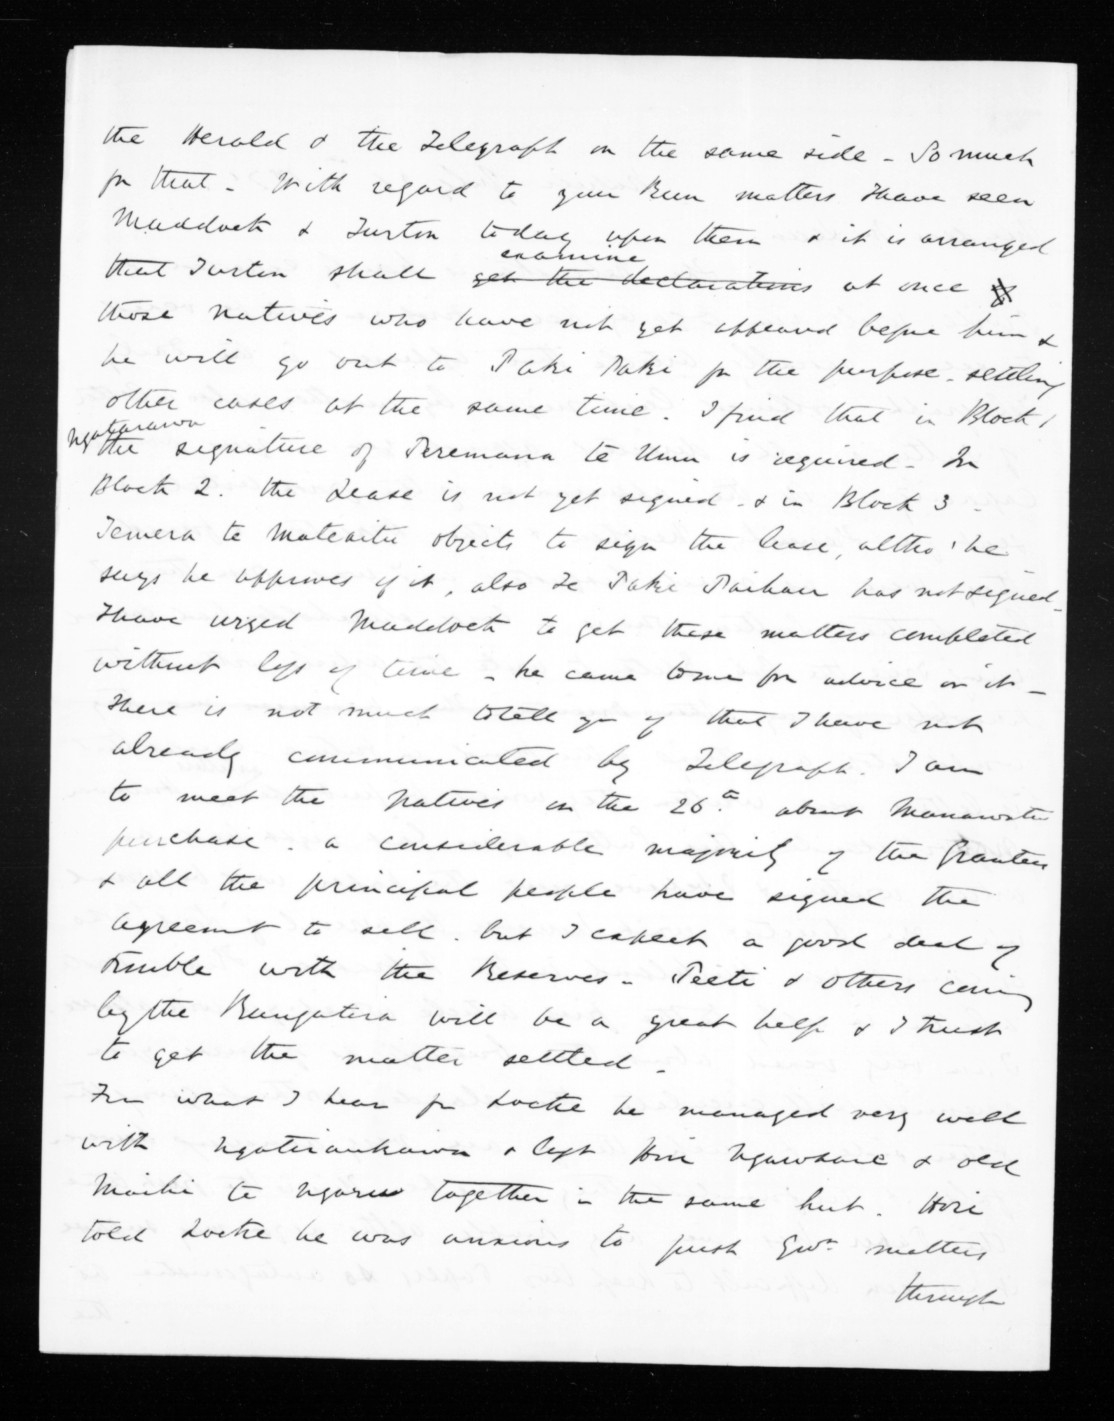 the Herald & the Telegraph on the same side - So much
for that - With regard to your Run matters I have seen
Maddock & Turton today upon them & it is arranged
examine
that Turton shall get the declarations at once of
those Natives who have not yet appeared before him &
he will go out to Paki Paki for the purpose - settling
other cases at the same time. I find that in Block 1
Ngatarawa
the signature of Teremana te Umu is required - In
Block 2. the Lease is not yet signed - & in Block 3 -
Temera te objects to sign the lease, altho' he
says he approves of it, also Te Paki has not signed -
I have urged Maddock to get these matters completed
without loss of time - he came to me for advice on it -
There is not much to tell you of that I have not
already communicated by Telegraph. I am
to meet the Natives on the 26th about Manawatu
purchase. a considerable majority of the Grantees
& all the principal people have signed the
agreemt to sell. but I expect a good deal of
trouble with the Reserves - Peeti & others coming
by the Rangatira will be a great help & I trust
to get the matter settled -
Frm what I hear fr Locke he managed very well
with Ngatiraukawa & left Hori & old
Maihi te together in the same hut. Hori
told Locke he was anxious to push Govt matters
through